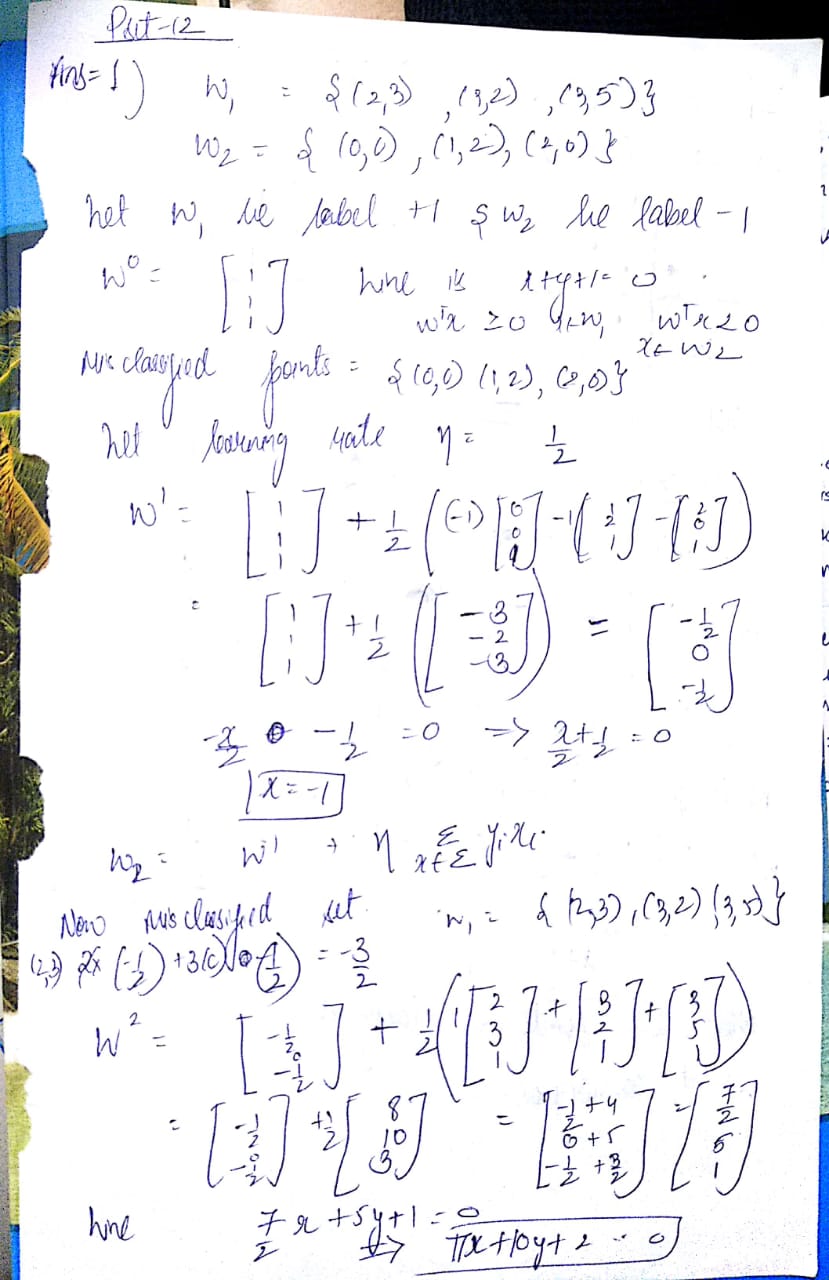 Part-12
Ans=1) W₁ = {(2,3), (3,2), (3,5)}
W₂ = {(0,0), (1,2), (2,0)}
Let W₁ be label +1 & W₂ be label -1
W⁰ = [1 1 1] Line is x+y+1=0
wᵀx ≥0 x∈W₁ wᵀx<0
x∈W₂
Misclassified points = {(0,0) (1,2), (2,0)}
Let learning rate η = 1/2
W¹ = [1 1 1] + 1/2 ((-1)[0 0 1] -1[1 2 1] -[2 0 1])
= [1 1 1] + 1/2 ([-3 -2 -3]) = [-1/2 0 -1/2]
-x/2 -1/2 =0 => x/2+1/2=0
x=-1
W₂ = W¹ + η Σ x∈Σ yᵢxᵢ
Now misclassified set W₁ = {(2,3), (3,2) (3,5)}
(2,3) (-1/2) +3(0) = -3/2
W² = [-1/2 0 -1/2] + 1/2 (1[2 3 1] + [3 2 1] + [3 5 1])
= [-1/2 0 -1/2] +1/2 [8 10 3] = [-1/2+4 0+5 -1/2+3/2] = [7/2 5 1]
Line 7/2 x +5y+1=0
=> 7x+10y+2=0